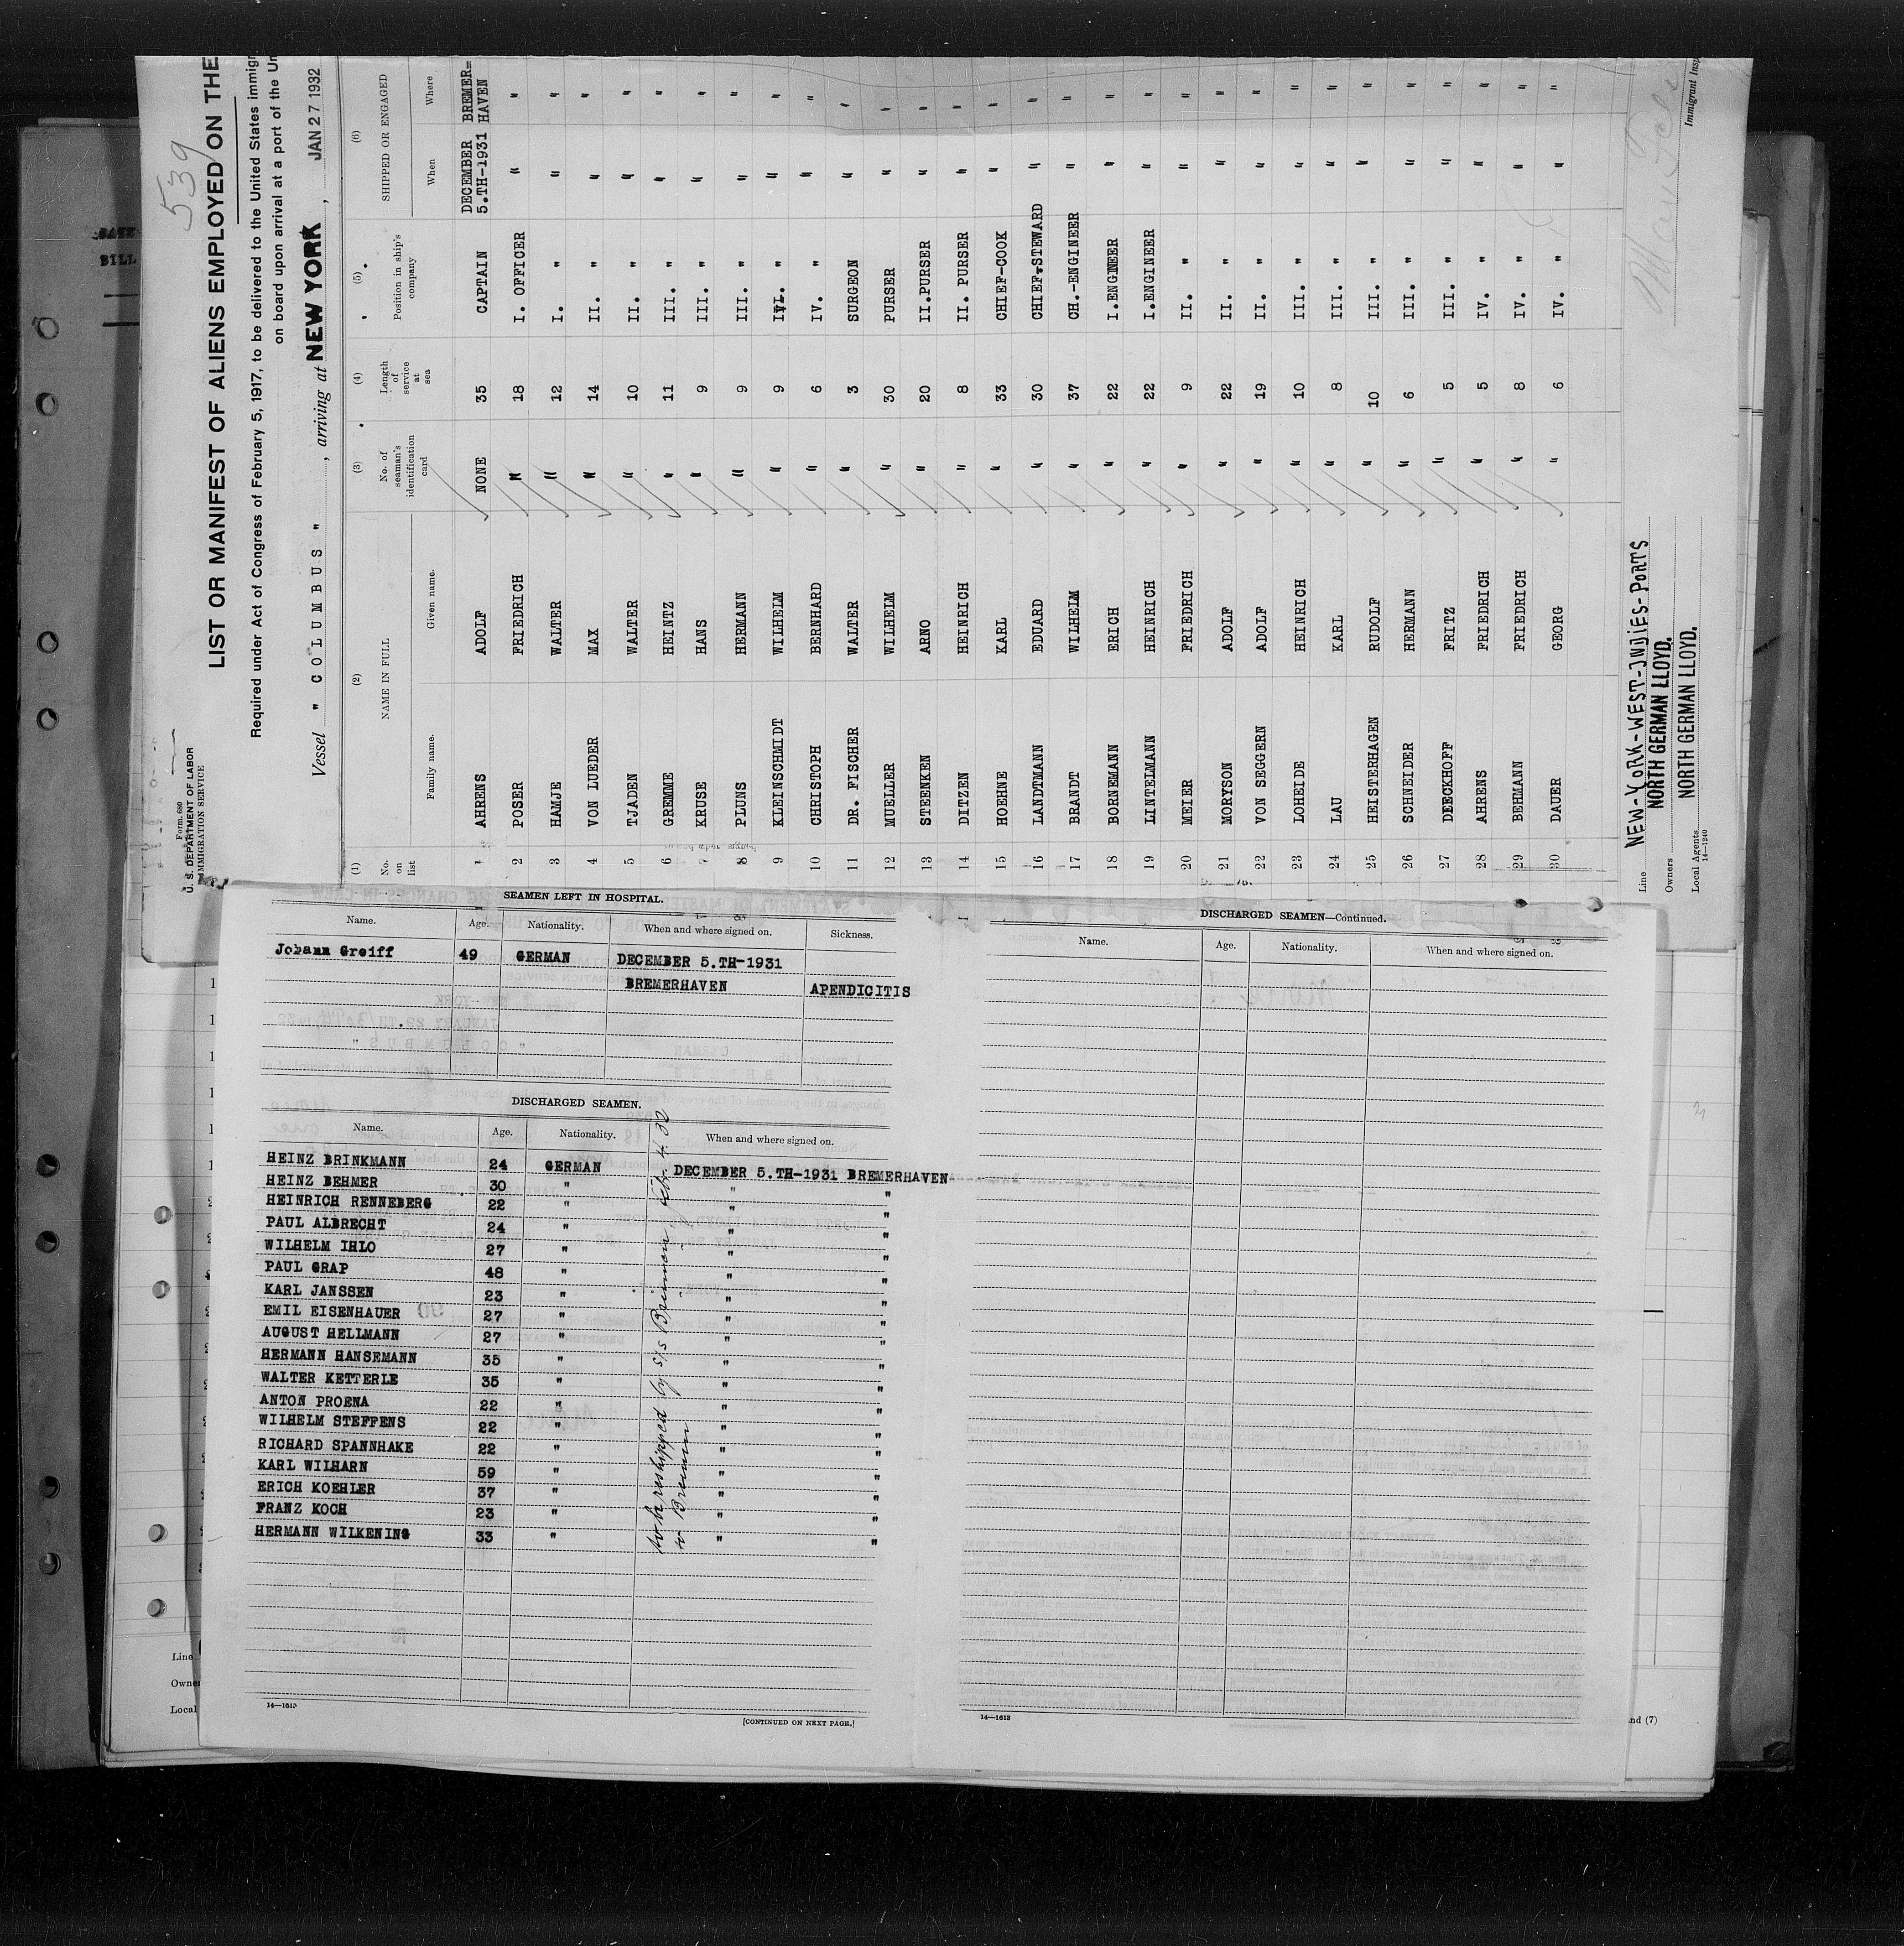 539
Form 680
U. S. DEPARTMENT OF LABOR
IMMIGRATION SERVICE
LIST OR MANIFEST OF ALIENS EMPLOYED ON THE
Required under Act of Congress of February 5, 1917, to be delivered to the United States immigr
on board upon arrival at a port of the Un
Vessel " COLUMBUS ", arriving at NEW YORK, JAN 27 1932
(1) (2) (3) (4) (5) (6)
No. on list NAME IN FULL No. of seaman's identification card Length of service at sea Position in ship's company SHIPPED OR ENGAGED
Family name. Given name. When Where
1 AHRENS ADOLF NONE 35 CAPTAIN DECEMBER 5.TH-1931 BREMER=HAVEN
2 POSER FRIEDRICH " 18 I. OFFICER " "
3 HAMJE WALTER " 12 I. " " "
4 VON LUEDER MAX " 14 II. " " "
5 TJADEN WALTER " 10 II. " " "
6 GREMME HEINTZ " 11 III. " " "
7 KRUSE HANS " 9 III. " " "
8 PLUNS HERMANN " 9 III. " " "
9 KLEINSCHMIDT WILHELM " 9 IV. " " "
10 CHRISTOPH BERNHARD " 6 IV. " " "
11 DR. FISCHER WALTER " 3 SURGEON " "
12 MUELLER WILHELM " 30 PURSER " "
13 STEENKEN ARNO " 20 II.PURSER " "
14 DITZEN HEINRICH " 8 II. PURSER " "
15 HOEHNE KARL " 33 CHIEF-COOK " "
16 LANDTMANN EDUARD " 30 CHIEF-STEWARD " "
17 BRANDT WILHELM " 37 CH.-ENGINEER " "
18 BORNEMANN ERICH " 22 I.ENGINEER " "
19 LINTELMANN HEINRICH " 22 I.ENGINEER " "
20 MEIER FRIEDRICH " 9 II. " " "
21 MORYSON ADOLF " 22 II. " " "
22 VON SEGGERN ADOLF " 19 II. " " "
23 LOHEIDE HEINRICH " 10 III. " " "
24 LAU KARL " 8 III. " " "
25 HEISTERHAGEN RUDOLF " 10 III. " " "
26 SCHNEIDER HERMANN " 6 III. " " "
27 DEECKHOFF FRITZ " 5 III. " " "
28 AHRENS FRIEDRICH " 5 IV. " " "
29 BEHMANN FRIEDRICH " 8 IV. " " "
30 DAUER GEORG " 6 IV. " " "
Line NEW-YORK-WEST-INDIES-PORTS
Owners NORTH GERMAN LLOYD.
Local Agents NORTH GERMAN LLOYD.
14-1240
Immigrant Insp
SEAMEN LEFT IN HOSPITAL.
Name. Age. Nationality. When and where signed on. Sickness.
Johann Greiff 49 GERMAN DECEMBER 5.TH-1931
BREMERHAVEN APENDICITIS
DISCHARGED SEAMEN.
Name. Age. Nationality. When and where signed on.
HEINZ BRINKMANN 24 GERMAN DECEMBER 5.TH-1931 BREMERHAVEN
HEINZ BEHMER 30 " " "
HEINRICH RENNEBERG 22 " " "
PAUL ALBRECHT 24 " " "
WILHELM IHLO 27 " " "
PAUL GRAP 48 " " "
KARL JANSSEN 23 " " "
EMIL EISENHAUER 27 " " "
AUGUST HELLMANN 27 " " "
HERMANN HANSEMANN 35 " " "
WALTER KETTERLE 35 " " "
ANTON PROENA 22 " " "
WILHELM STEFFENS 22 " " "
RICHARD SPANNHAKE 22 " " "
KARL WILHARN 59 " " "
ERICH KOEHLER 37 " " "
FRANZ KOCH 23 " " "
HERMANN WILKENING 33 " " "
to be reshipped by S/S Bremen Febr. 4. 32
to Bremen
14—1613
[CONTINUED ON NEXT PAGE.]
DISCHARGED SEAMEN—Continued.
Name. Age. Nationality. When and where signed on.
14—1613
Line
Owne
Local
nd (7)
BILL